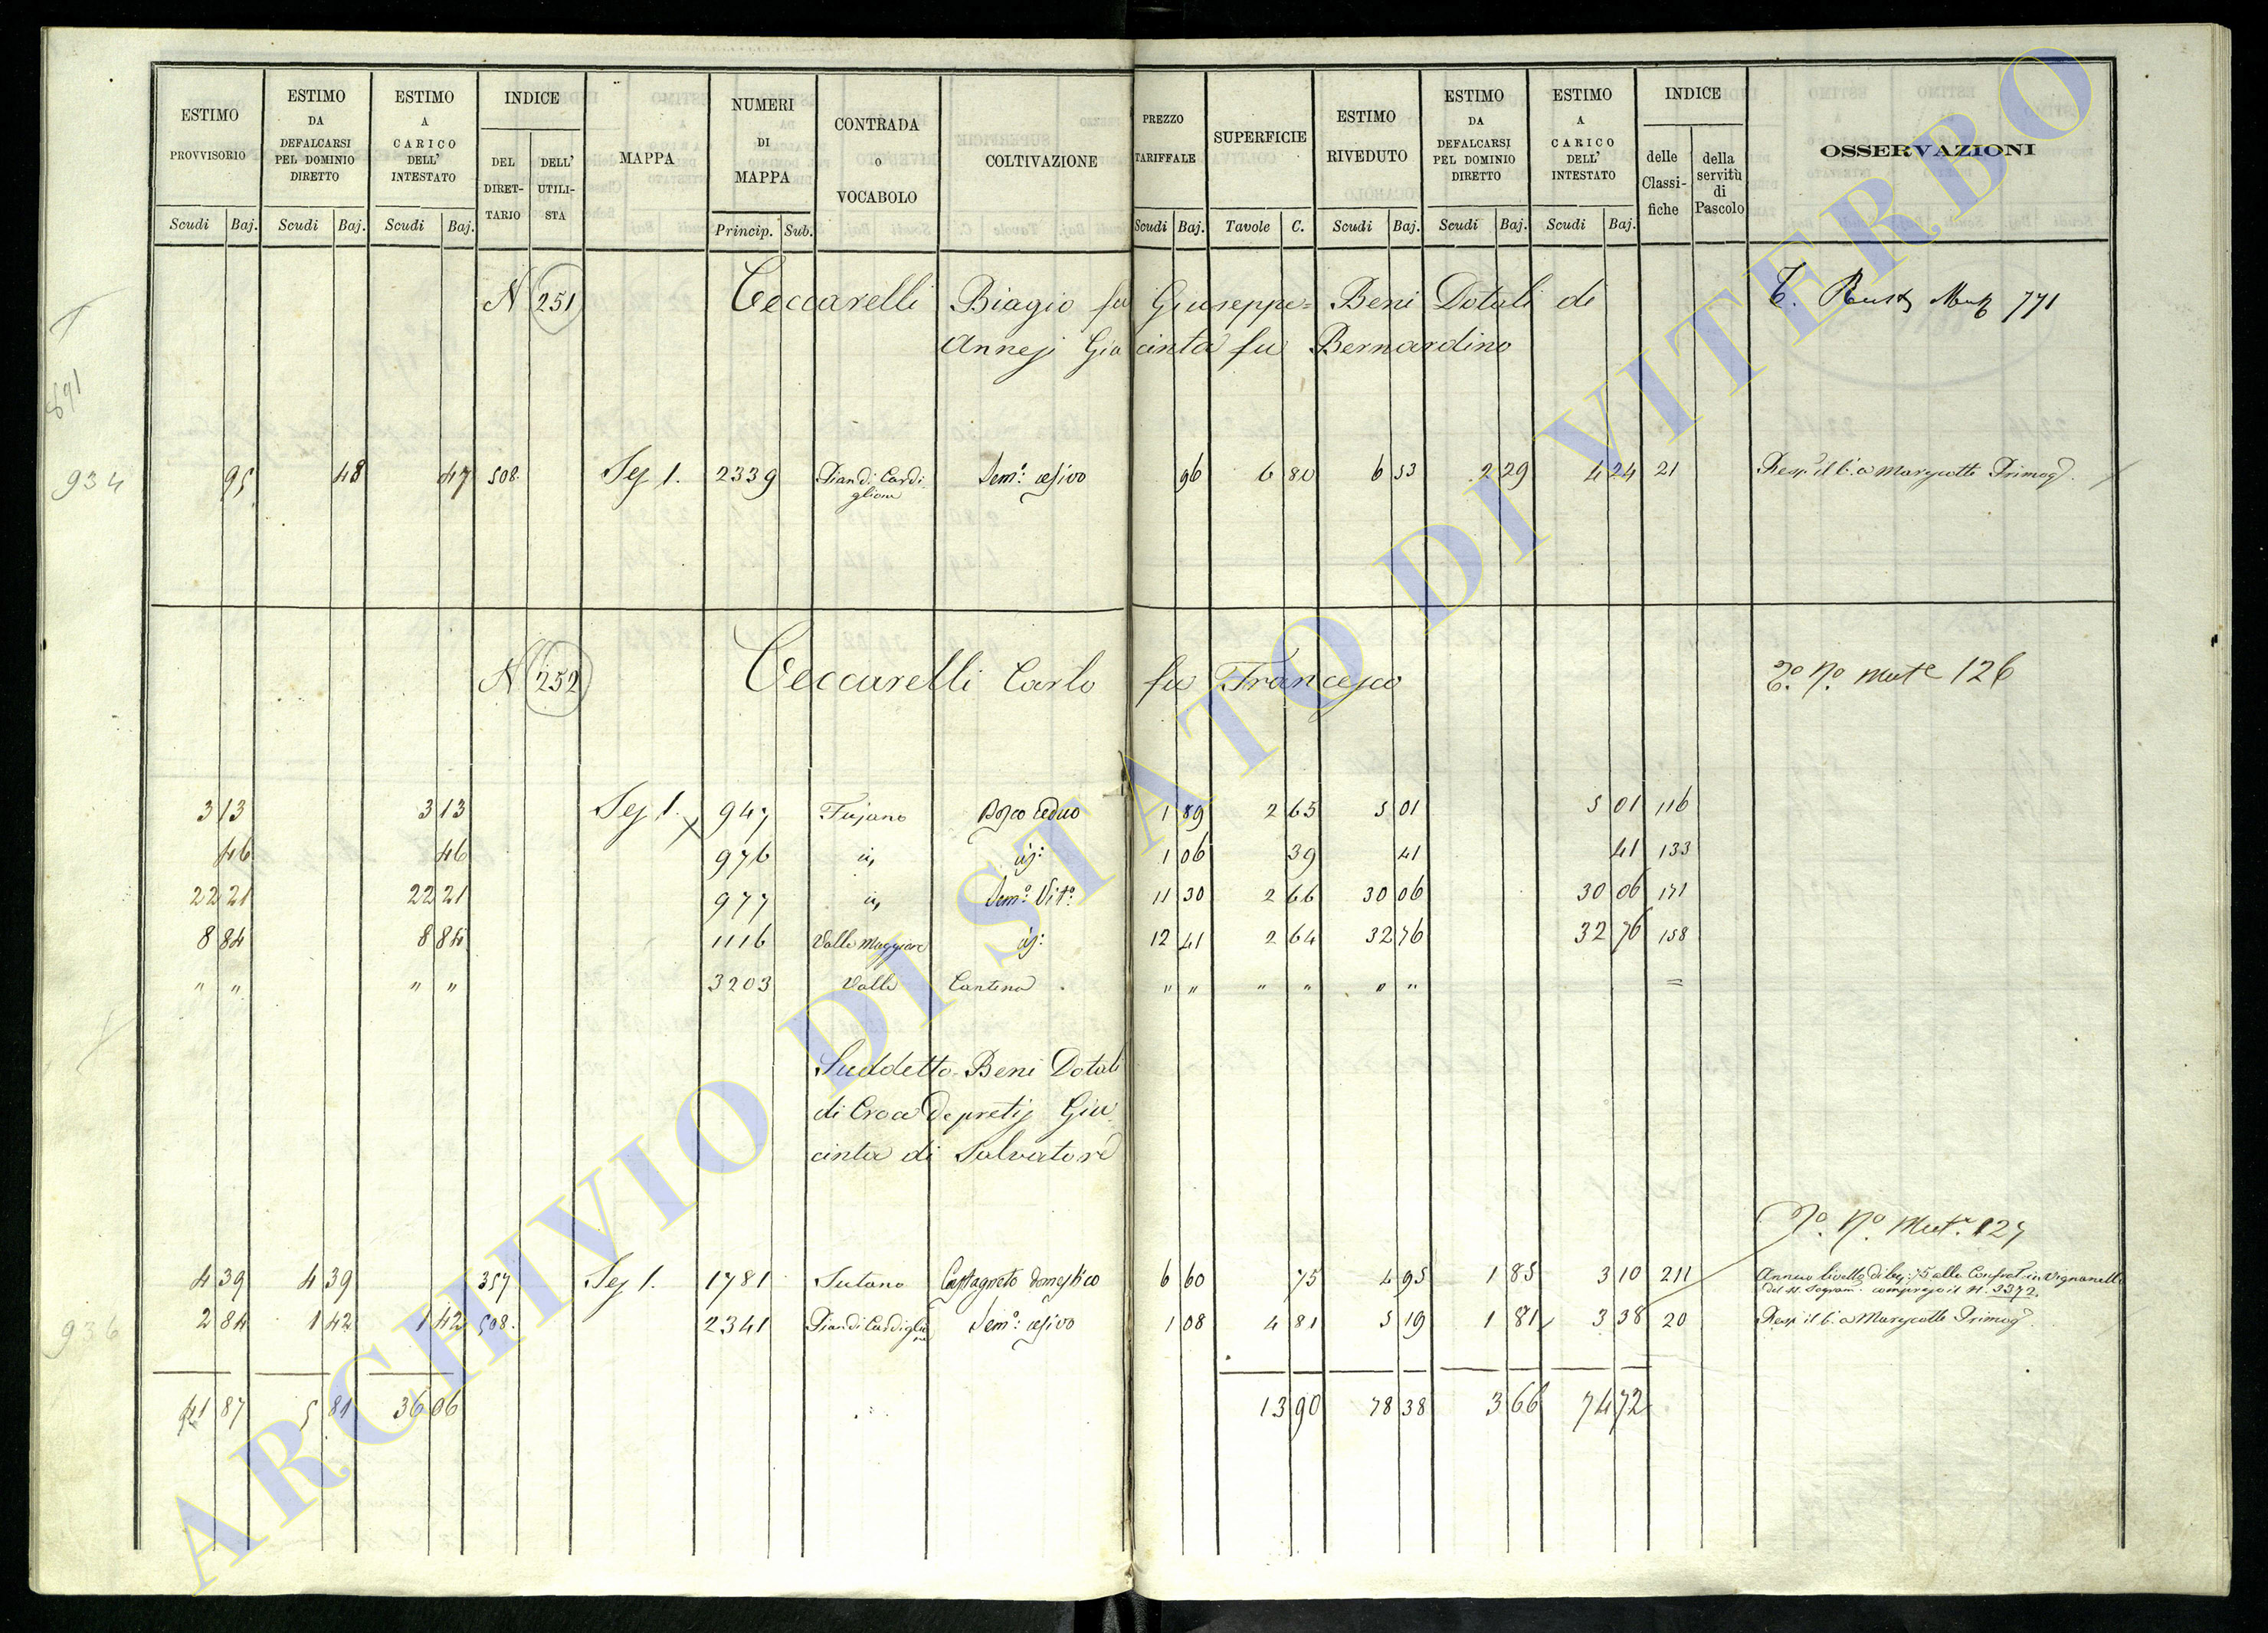 ESTIMO PROVVISORIO | ESTIMO DA DEFALCARSI PEL DOMINIO DIRETTO | ESTIMO A CARICO DELL' INTESTATO | INDICE | MAPPA | NUMERI DI MAPPA | CONTRADA o VOCABOLO | COLTIVAZIONE | PREZZO TARIFFALE | SUPERFICIE | ESTIMO RIVEDUTO | ESTIMO DA DEFALCARSI PEL DOMINIO DIRETTO | ESTIMO A CARICO DELL' INTESTATO | INDICE | OSSERVAZIONI
DEL DIRET-TARIO | DELL' UTILI-STA | delle Classi-fiche | della servitù di Pascolo
Scudi | Baj. | Scudi | Baj. | Scudi | Baj. | Princip. | Sub. | Scudi | Baj. | Tavole | C. | Scudi | Baj. | Scudi | Baj. | Scudi | Baj.
N 251 Ceccarelli Biagio fu Giuseppe = Beni Dotali di 771
Annesi Giacinta fu Bernardino
891
934 95 48 47 508. Sez 1. 2339 Pian di Cardigliano Sem.º cesivo 96 6 80 6 53 2 29 4 24 21 Resp. il b. a Marescotti Primog.
N 252 Ceccarelli Carlo fu Francesco Nº Mut.e 126
3 13 3 13 Sez 1. 947 Fujano Bosco ceduo 1 89 2 65 5 01 5 01 116
46 46 976 id. id: 1 06 39 41 41 133
22 21 22 21 977 id. Sem.º Vit.º 11 30 2 66 30 06 30 06 171
8 84 8 84 1116 Valle Maggiore id: 12 41 2 64 32 76 32 76 158
" " " " 3203 Valle Cantina " " " " " " =
Suddetto = Beni Dotali
di Croce Depretis Gia
cinta di Salvatore
Nº Mut.e 127
4 39 4 39 357 Sez 1. 1781 Sutano Castagneto domestico 6 60 75 4 95 1 85 3 10 211 Annuo livello di 75 alla Confrat. in Vignanello
del compreso il N. 3372.
936 2 84 1 42 1 42 508. 2341 Pian di Cardigliano Sem.º cesivo 1 08 4 81 5 19 1 81 3 38 20 Resp. il b. a Marescotti Primog.
41 87 5 81 36 06 13 90 78 38 3 66 74 72
ARCHIVIO DI STATO DI VITERBO